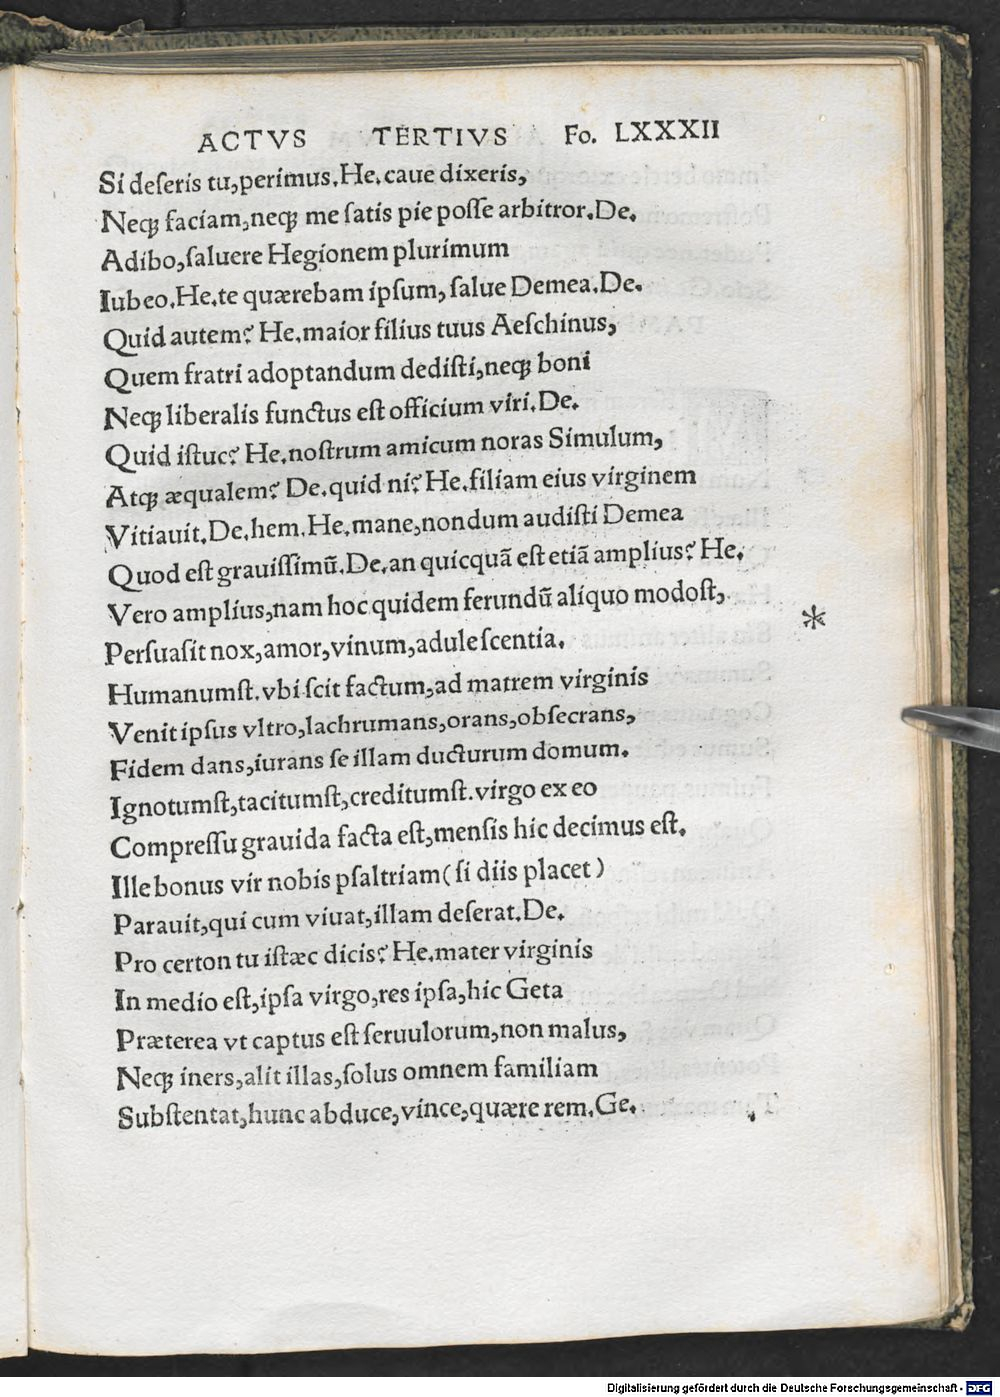 ACTVS TERTIVS Fo. LXXXII
Si deſeris tu,perimus.He.caue dixeris,
Neqꝫ faciam,neqꝫ me ſatis pie poſſe arbitror.De.
Adibo,ſaluere Hegionem plurimum
Iubeo.He.te quærebam ipſum,ſalue Demea.De.
Quid autem? He.maior filius tuus Aeſchinus,
Quem fratri adoptandum dediſti,neqꝫ boni
Neqꝫ liberalis functus eſt officium viri.De.
Quid iſtuc? He.noſtrum amicum noras Simulum,
Atqꝫ æqualem? De.quid ni? He.filiam eius virginem
Vitiauit.De.hem.He.mane,nondum audiſti Demea
Quod eſt grauiſſimū.De.an quicquā eſt etiā amplius? He.
Vero amplius,nam hoc quidem ferundū aliquo modoſt,
Perſuaſit nox,amor,vinum,aduleſcentia. *
Humanumſt.vbi ſcit factum,ad matrem virginis
Venit ipſus vltro,lachrumans,orans,obſecrans,
Fidem dans,iurans ſe illam ducturum domum.
Ignotumſt,tacitumſt,creditumſt.virgo ex eo
Compreſſu grauida facta eſt,menſis hic decimus eſt.
Ille bonus vir nobis pſaltriam(ſi diis placet)
Parauit,qui cum viuat,illam deſerat.De.
Pro certon tu iſtæc dicis? He.mater virginis
In medio eſt,ipſa virgo,res ipſa,hic Geta
Præterea vt captus eſt ſeruulorum,non malus,
Neqꝫ iners,alit illas,ſolus omnem familiam
Subſtentat,hunc abduce,vince,quære rem.Ge.
Digitalisierung gefördert durch die Deutsche Forschungsgemeinschaft - DFG